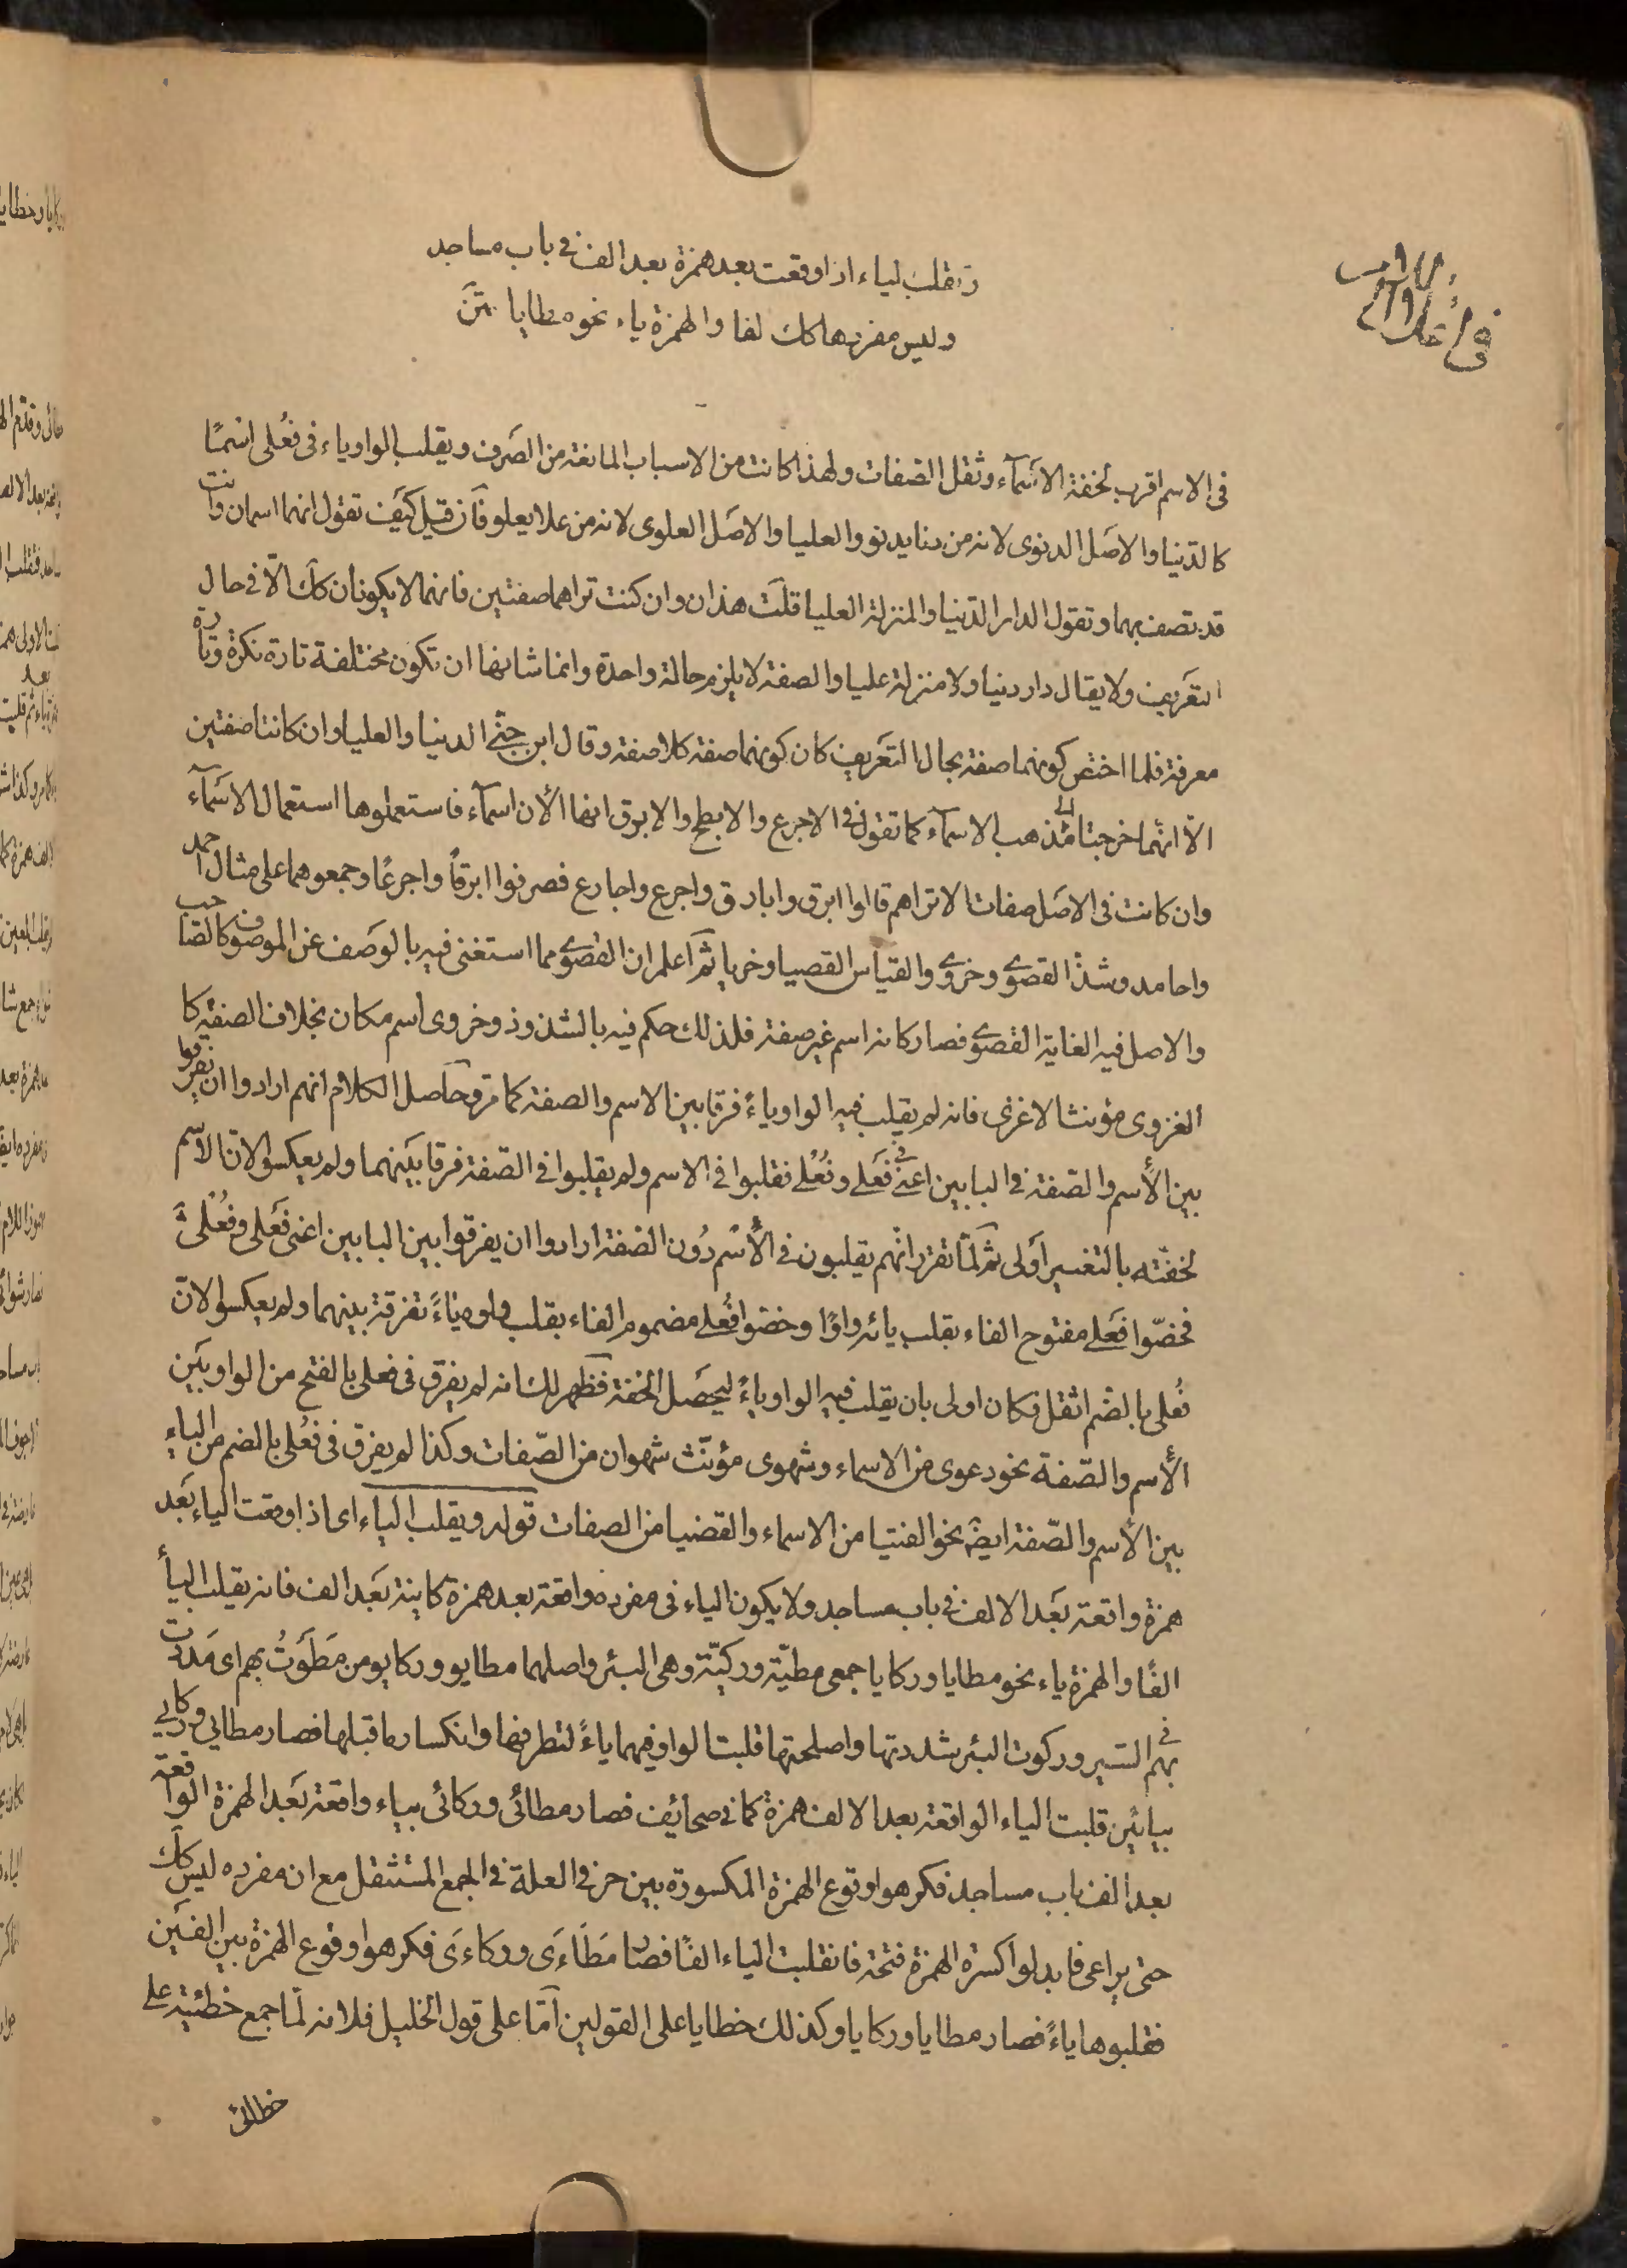 وتقلب الياء اذا وقعت بعد همزة بعد الف فى باب مساجد
وليس مفردها كك الفا والهمزة ياء نحو مطايا متن
فى الاسم اقرب لخفة الاسمآء وثقل الصفات ولهذا كانت من الاسباب المانعة من الصرف ويقلب الواو ياء فى فُعلى اسمًا
كالدنيا والاصل الدنوى لانه من دنا يدنو والعليا والاصل العلوى لانه من علا يعلو فان قيل كيف تقول انهما اسمان وانت
قد تصف بهما وتقول الدار الدنيا والمنزلة العليا قلت هذان وان كنت تراهما صفتين فانهما لا يكونان كك الا فى حال
التعريف ولا يقال دار دنيا ولا منزلة عليا والصفة لا يلزم حالة واحدة وانما شانها ان تكون مختلفة تارة نكرة وتارة
معرفة فلما اختص كونهما صفة بحال التعريف كان كونهما صفة كلا صفة وقال ابن جنّى الدنيا والعليا وان كانتا صفتين
الا انهما خرجتا الى مذهب الاسمآء كما تقول فى الاجرع والابطح والابرق انها الأن اسمآء فاستعملوها استعمال الاسمآء
وان كانت فى الاصل صفات الا تراهم قالوا ابرق وابارق واجرع واجارع فصرفوا ابرقاً واجرعًا وجمعوهما على مثال احمد
واحامد وشذ القصوى وخزوى والقياس القصيا وخزيا ثم اعلم ان القصوى مما استغنى فيه بالوصف عن الموصوف كالصاحب
والاصل فيه الغاية القصوى فصار كانه اسم غير صفة فلذلك حكم فيه بالشذوذ وخزوى اسم مكان بخلاف الصفة كا
الغزوى مؤنث الاغزى فانه لم يقلب فيه الواو ياءً فرقا بين الاسم والصفة كما مر وحاصل الكلام انهم ارادوا ان يفرقوا
بين الأسم والصّفة فى البابين اعنى فى فَعلى وفُعْلى فقلبوا فى الاسم ولم يقلبوا فى الصّفة فرقا بينهما ولم يعكسوا لانّ الأسم
لخفّته بالتغيير اولى ثم لمّا تقرر انهم يقلبون فى الأسم دُون الصفة ارادوا ان يفرقوا بين البابين اعنى فَعلى وفُعْلى
فخصّوا فَعلى مفتوح الفاء بقلب يائه واوًا وخصّوا فُعلى مضموم الفاء بقلب واوه ياءً تفرقة بينهما ولم يعكسوا لانّ
فُعلى بالضم اثقل فكان اولى بان يقلب فيه الواو ياءً ليحصل الخفة فظهر لك انه لم يفرق فى فعلى بالفتح من الواو بين
الأسم والصّفة نحو دعوى من الاسماء وشهوى مؤنّث شهوان من الصّفات وكذا لم يفرق فى فُعلى بالضم من الياء
بين الأسم والصّفة ايضًا نحو الفتيا من الاسماء والقضيا من الصفات قوله ويقلب الياء اى اذا وقعت الياء بعد
همزة واقعة بعد الالف فى باب مساجد ولا يكون الياء فى مفرده واقعة بعد همزة كاينة بعد الف فانه يقلب اليأ
الفًا والهمزة ياء نحو مطايا وركايا جمعى مطيّة وركيّة وهى البئر واصلهما مطايو وركايو من مَطَوتُ بهم اى مَددت
بهم فى السير وركوت البئر شددتها واصلحتها قلبت الواو فيهما ياءً لتطرفها وانكسار ما قبلها فصار مطايى وركايى
بيائين قلبت الياء الواقعة بعد الالف همزة كما فى صحائف فصار مطائى وركائى بياء واقعة بعد الهمزة الواقعة
بعد الف باب مساجد فكرهوا وقوع الهمزة المكسورة بين حرفى العلة فى الجمع المستثقل مع ان مفرده ليس كك
حتى يراعى فابدلوا كسرة الهمزة فتحة فانقلبت الياء الفًا فصار مَطَاءَى وركاءَى فكرهوا وقوع الهمزة بين الفين
فقلبوها ياءً فصار مطايا وركايا وكذلك خطايا على القولين اَمّا على قول الخليل فلانه لمّا جمع خطيئة على
خطائى